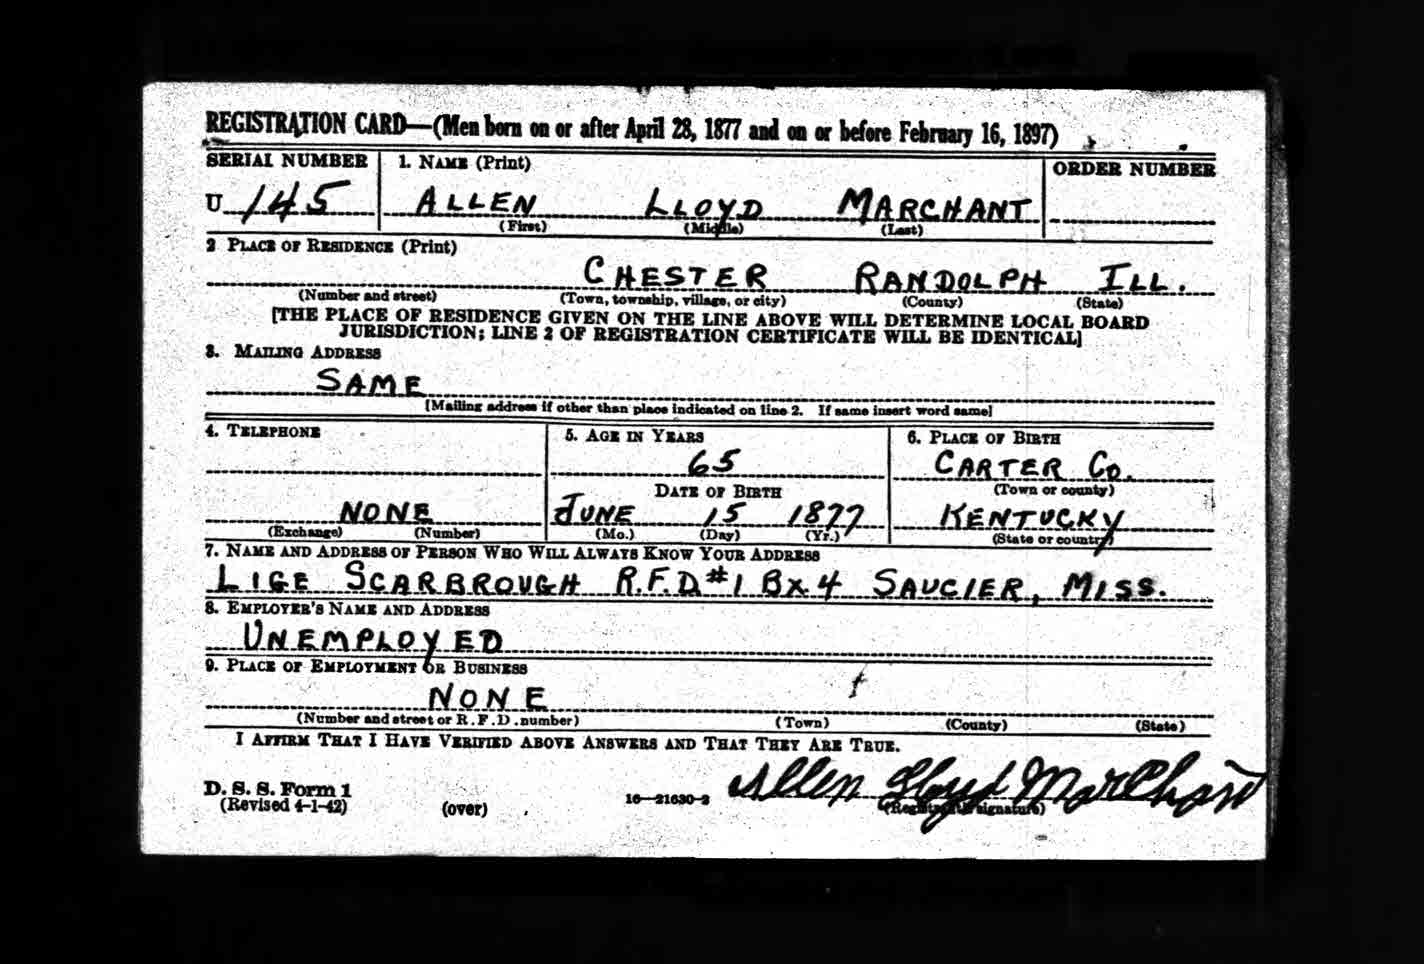 REGISTRATION CARD—(Men born on or after April 28, 1877 and on or before February 16, 1897)
SERIAL NUMBER 1. NAME (Print) ORDER NUMBER
U 145 ALLEN LLOYD MARCHANT
(First) (Middle) (Last)
2 PLACE OF RESIDENCE (Print)
CHESTER RANDOLPH ILL.
(Number and street) (Town, township, village, or city) (County) (State)
[THE PLACE OF RESIDENCE GIVEN ON THE LINE ABOVE WILL DETERMINE LOCAL BOARD
JURISDICTION; LINE 2 OF REGISTRATION CERTIFICATE WILL BE IDENTICAL]
3. MAILING ADDRESS
SAME
[Mailing address if other than place indicated on line 2. If same insert word same]
4. TELEPHONE 5. AGE IN YEARS 6. PLACE OF BIRTH
65 CARTER CO.
DATE OF BIRTH (Town or county)
NONE JUNE 15 1877 KENTUCKY
(Exchange) (Number) (Mo.) (Day) (Yr.) (State or country)
7. NAME AND ADDRESS OF PERSON WHO WILL ALWAYS KNOW YOUR ADDRESS
LIGE SCARBROUGH R.F.D.#1 BX 4 SAUCIER, MISS.
8. EMPLOYER'S NAME AND ADDRESS
UNEMPLOYED
9. PLACE OF EMPLOYMENT OR BUSINESS
NONE
(Number and street or R.F.D. number) (Town) (County) (State)
I AFFIRM THAT I HAVE VERIFIED ABOVE ANSWERS AND THAT THEY ARE TRUE.
Allen Lloyd Marchant
D. S. S. Form 1
(Revised 4-1-42) (over) 16—21630-2 (Registrant's signature)